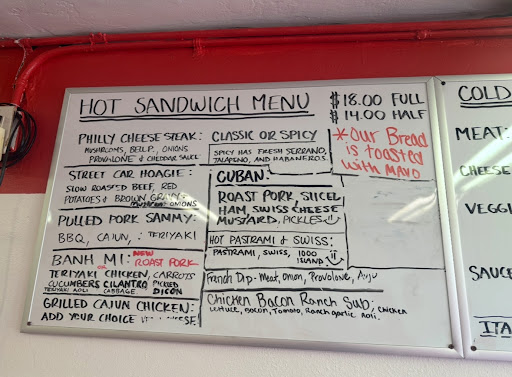 HOT SANDWICH MENU
$18.00 FULL
$14.00 HALF
*OUR BREAD
is TOASTED
with MAYO
PHILLY CHEESE STEAK:
MUSHROOMS, BELL P., ONIONS
PROVALONE & CHEDDAR SAUCE
CLASSIC OR SPICY
SPICY HAS FRESH SERRANO,
JALAPENO, AND HABANEROS.
STREET CAR HOAGIE:
SLOW ROASTED BEEF, RED
POTATOES & BROWN GRAVY
ONIONS
CUBAN:
ROAST PORK, SLICED
HAM, SWISS CHEESE
MUSTARD, PICKLES
PULLED PORK SAMMY:
BBQ, CAJUN, : TERIYAKI
HOT PASTRAMI & SWISS:
PASTRAMI, SWISS, 1000
ISLAND
BANH MI: NEW
OR ROAST PORK
TERIYAKI CHICKEN, CARROTS
CUCUMBERS CILANTRO PICKLED
TERIYAKI AOLI CABBAGE DICON
French Dip - Meat, Onion, Provolone, Auju
GRILLED CAJUN CHICKEN:
ADD YOUR CHOICE CHEESE
Chicken Bacon Ranch Sub; Chicken
Lettuce, Bacon, Tomato, Ranch garlic Aoli.
COLD
MEAT:
CHEESE
VEGGI
SAUCE
ITA